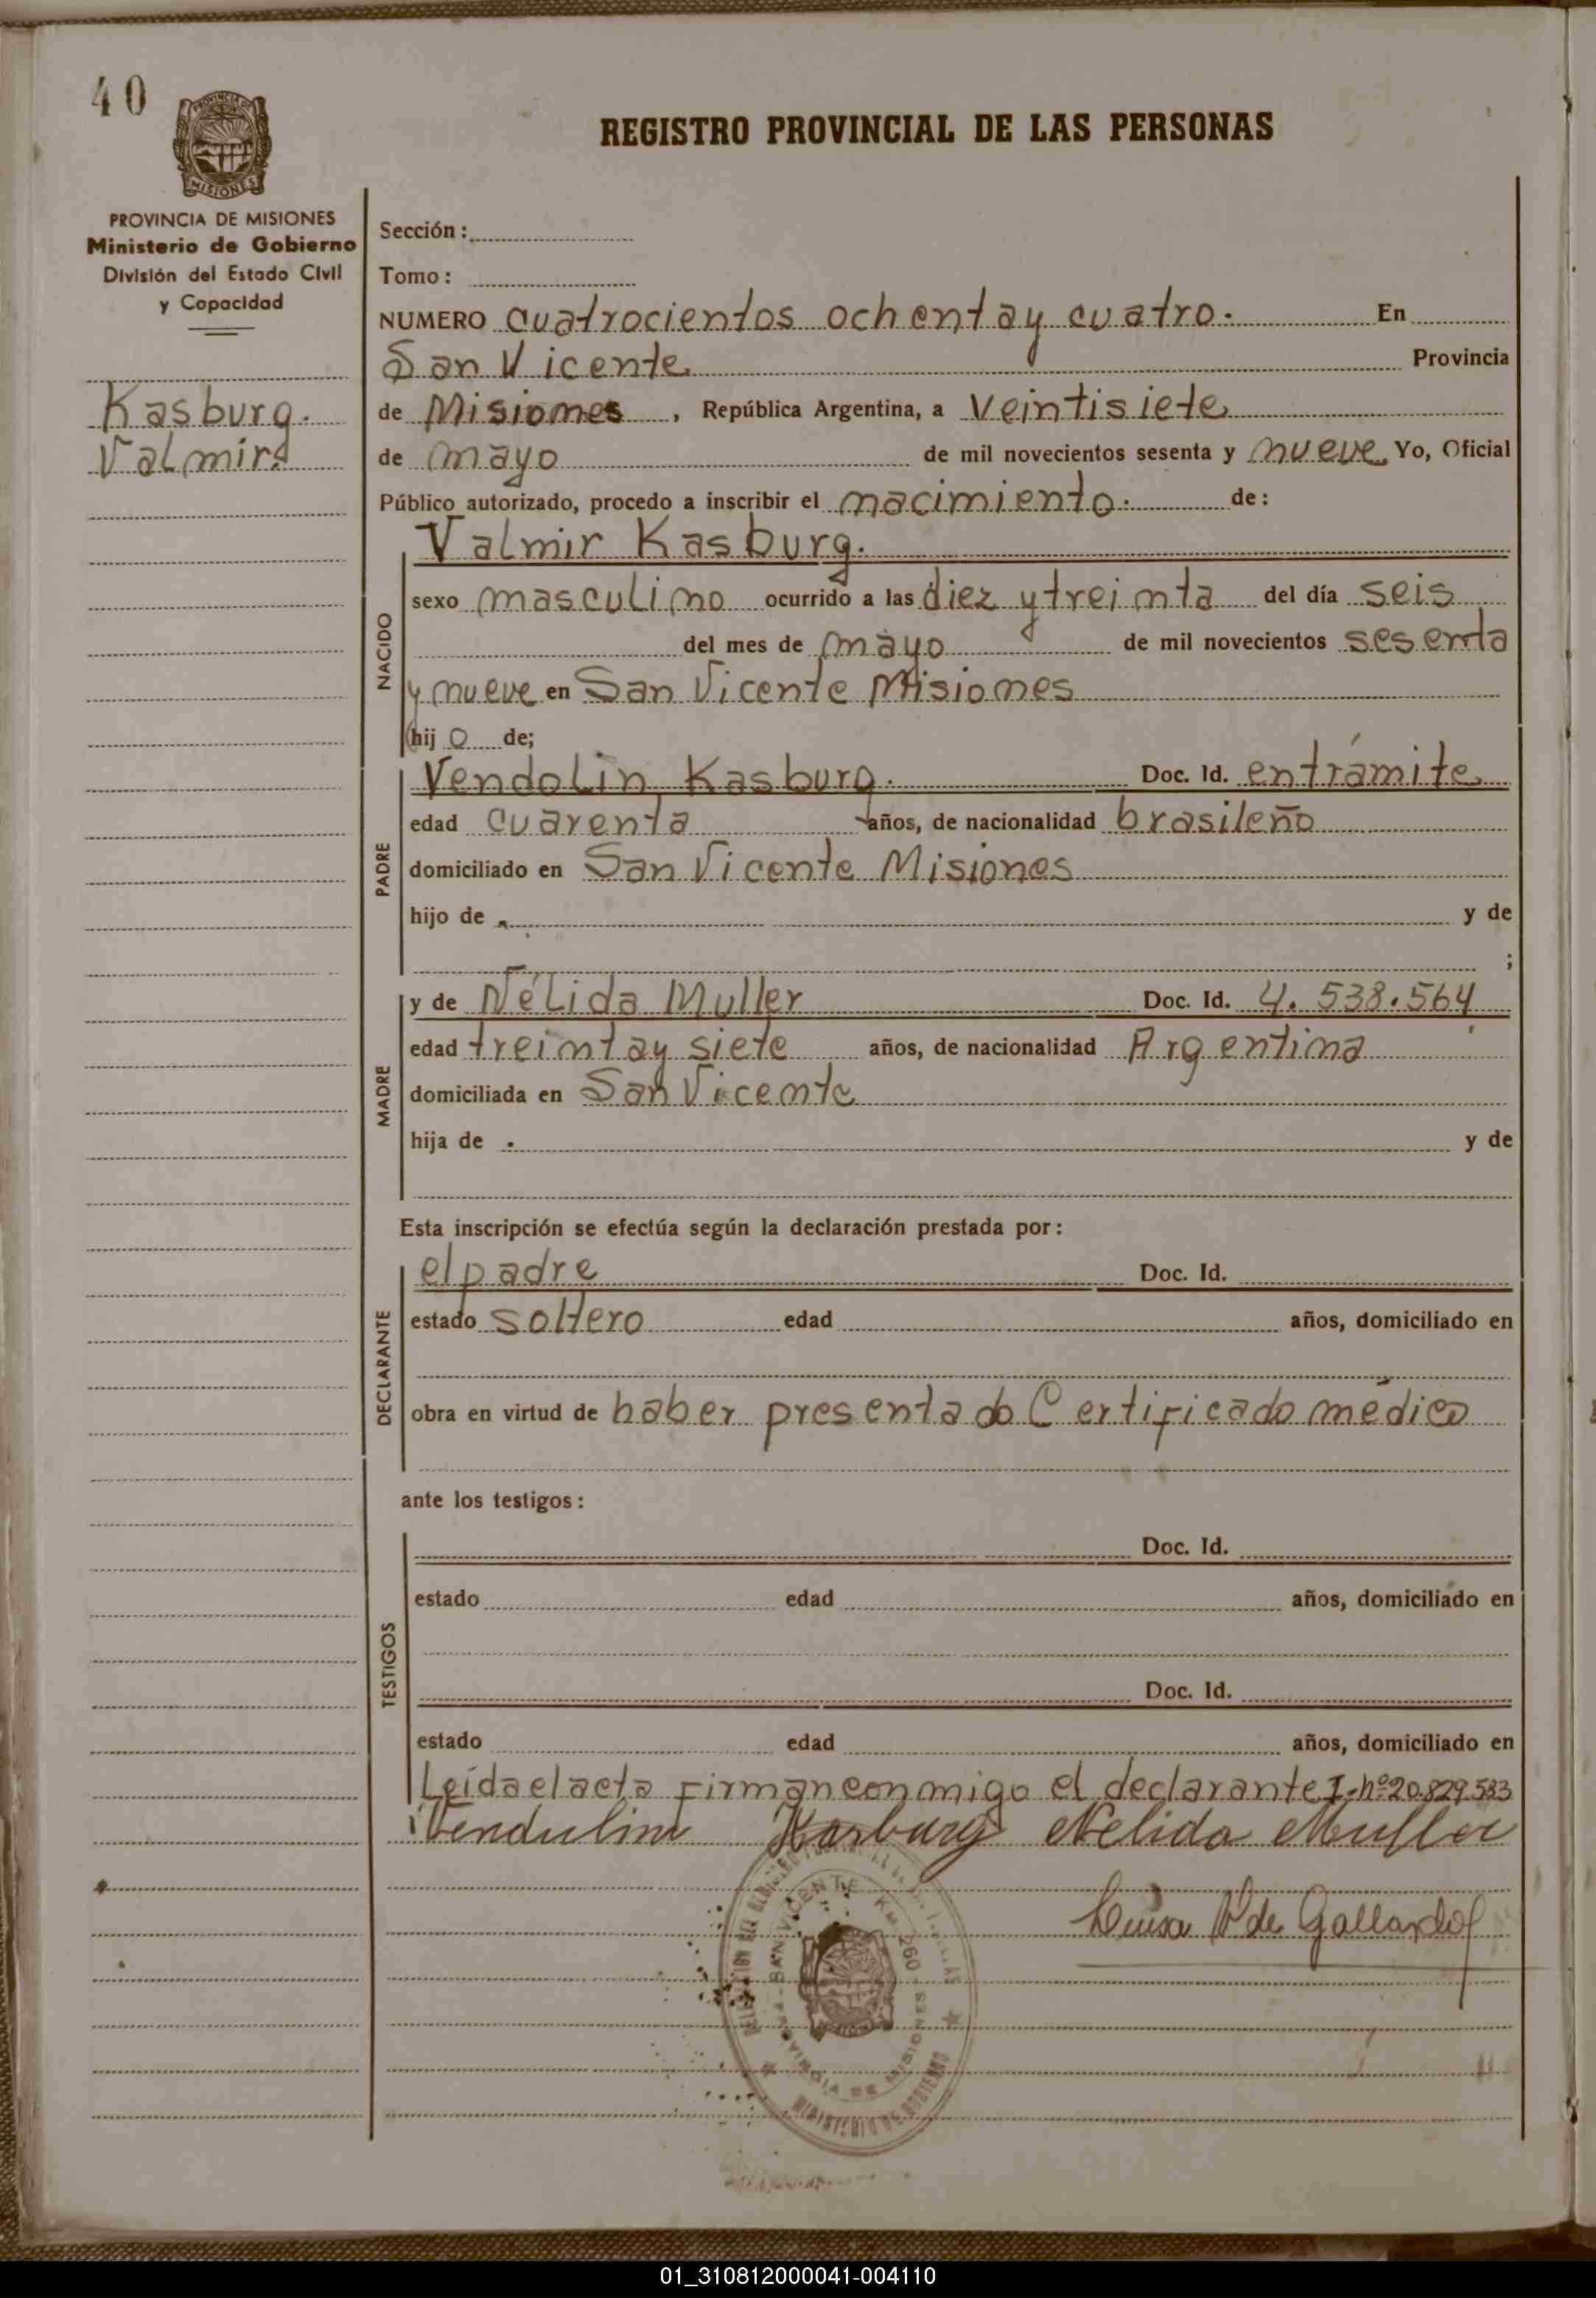 40
PROVINCIA DE MISIONES
Ministerio de Gobierno
División del Estado Civil
y Capacidad
Kasburg.
Valmir.
REGISTRO PROVINCIAL DE LAS PERSONAS
Sección:
Tomo:
NUMERO cuatrocientos ochenta y cuatro. En
San Vicente Provincia
de Misiones, República Argentina, a Veintisiete
de mayo de mil novecientos sesenta y nueve Yo, Oficial
Público autorizado, procedo a inscribir el nacimiento. de:
Valmir Kasburg.
NACIDO
sexo masculino ocurrido a las diez y treinta del día seis
del mes de mayo de mil novecientos sesenta
y nueve en San Vicente Misiones
hij o de;
PADRE
Vendolin Kasburg. Doc. Id. en trámite
edad cuarenta años, de nacionalidad brasileño
domiciliado en San Vicente Misiones
hijo de y de
;
MADRE
y de Nélida Muller Doc. Id. 4.538.564
edad treinta y siete años, de nacionalidad Argentina
domiciliada en San Vicente
hija de . y de
Esta inscripción se efectúa según la declaración prestada por:
DECLARANTE
el padre Doc. Id.
estado soltero edad años, domiciliado en
obra en virtud de haber presentado Certificado médico
ante los testigos:
TESTIGOS
Doc. Id.
estado edad años, domiciliado en
Doc. Id.
estado edad años, domiciliado en
Leída el acta firman conmigo el declarante I. nº 20.829.533
Vendulim Kasburg Nelida Muller
Luisa de Gallardo
SAN VICENTE KM 260
PROVINCIA DE MISIONES
MINISTERIO DE GOBIERNO
01_310812000041-004110